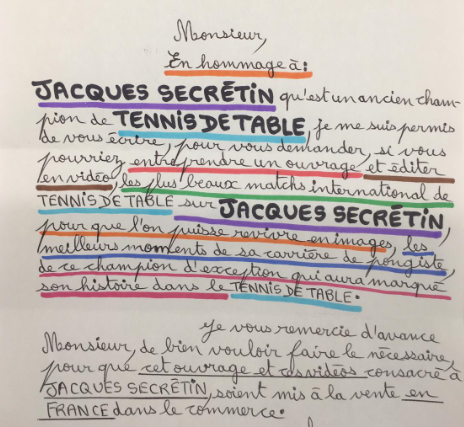 Monsieur,
En hommage à:
JACQUES SECRÉTIN qu'est un ancien cham-
pion de TENNIS DE TABLE, je me suis permis
de vous écrire, pour vous demander, si vous
pourriez entreprendre un ouvrage et éditer
en vidéo, les plus beaux matchs international de
TENNIS DE TABLE sur JACQUES SECRÉTIN,
pour que l'on puisse revivre en images, les
meilleurs moments de sa carrière de pongiste,
de ce champion d'exception qui aura marqué
son histoire dans le TENNIS DE TABLE.
Je vous remercie d'avance
Monsieur, de bien vouloir faire le nécessaire,
pour que cet ouvrage et ces vidéos consacré à
JACQUES SECRÉTIN, soient mis à la vente en
FRANCE dans le commerce.